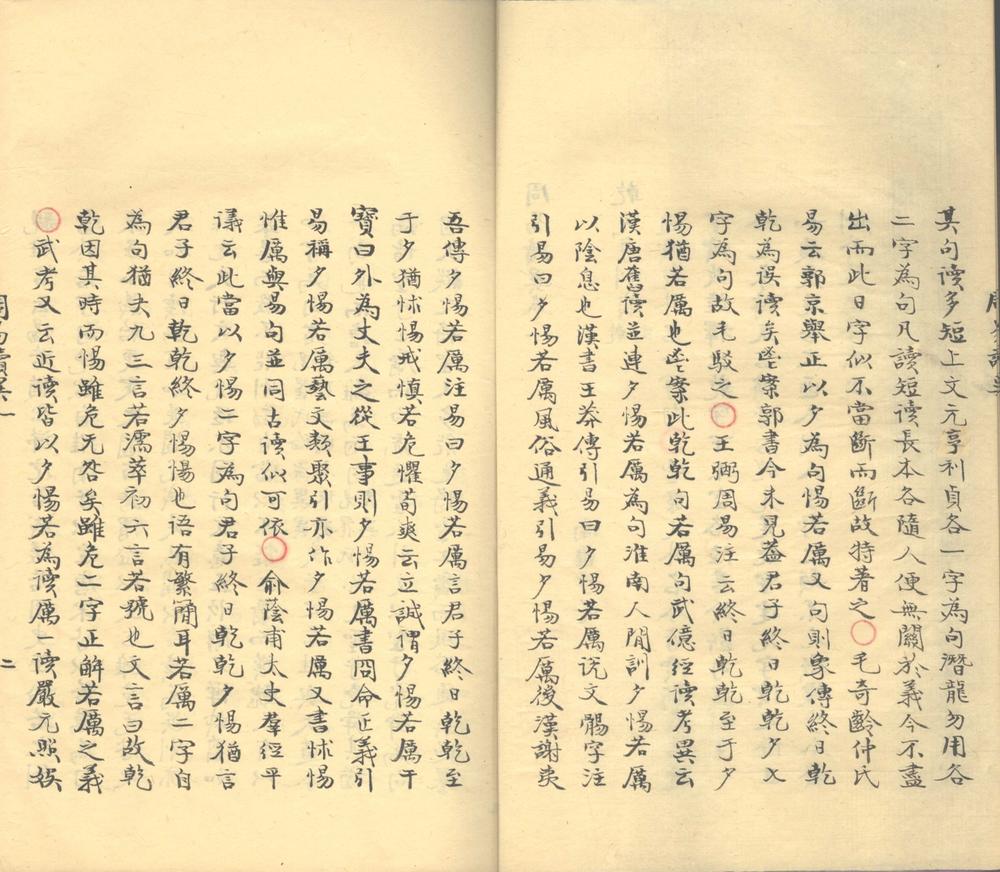 其句读多短上文元亨利貞各一字為句潛龍勿用各
二字為句凡讀短读長本各隨人便無關於義今不盡
出而此日字似不當斷而斷故特著之○毛奇齡仲氏
易云郭京舉正以夕為句惕若厲又句則象傳終日乾
乾為误读矣案郭書今未見蓋君子終日乾乾夕又
字為句故毛駁之○王弼周易注云終日乾乾至于夕
惕猶若厲也案此乾乾句若厲句武億经读考異云
漢唐舊读並連夕惕若厲為句淮南人間訓夕惕若厲
以陰息也漢書王莽傳引易曰夕惕若厲说文𩩲字注
引易曰夕惕若厲風俗通義引易夕惕若厲後漢謝夷
吾傳夕惕若厲注易曰夕惕若厲言君子終日乾乾至
于夕猶怵惕戒慎若危懼荀爽云立誠謂夕惕若厲干
寶曰外為丈夫之從王事則夕惕若厲書冏命正義引
易稱夕惕若厲藝文類聚引亦作夕惕若厲又書怵惕
惟厲與易句並同古读似可依○俞蔭甫太史羣經平
議云此當以夕惕二字為句君子終日乾乾夕惕猶言
君子終日乾乾終夕惕惕也语有繁簡耳若厲二字自
為句猶夬九三言若濡萃初六言若號也文言曰故乾
乾因其時而惕雖危无咎矣雖危二字正解若厲之義
○武考又云近读皆以夕惕若為读厲一读嚴元照娱
周易讀異一
二